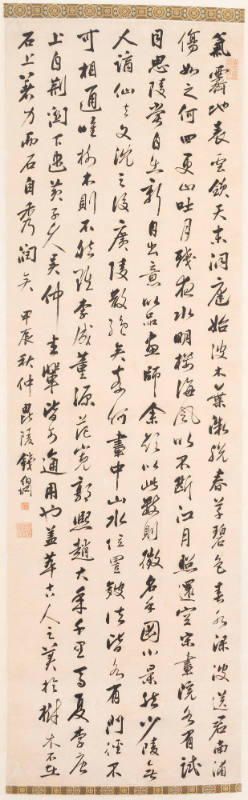 氣霽地表雲斂天末洞庭始波木葉微脫春草碧色春水淥波送君南浦
傷如之何四更山吐月殘夜水明樓海風吹不斷江月照還空宋畫院各有試
目思陵嘗自出新意以品畫師余欲以此數則徵名手圖小景然少陵無
人謫仙去文沈之後廣陵散絕矣奈何畫中山水位置皴法皆各有門徑不
可相通唯樹木則不然雖李成董源范寬郭熙趙大年千里馬夏李唐
上自荊關下逮黃子久吳仲圭輩皆可通用也蓋萃古人之美於樹木不在
石上著力而石自秀潤矣 甲辰秋仲毘陵錢